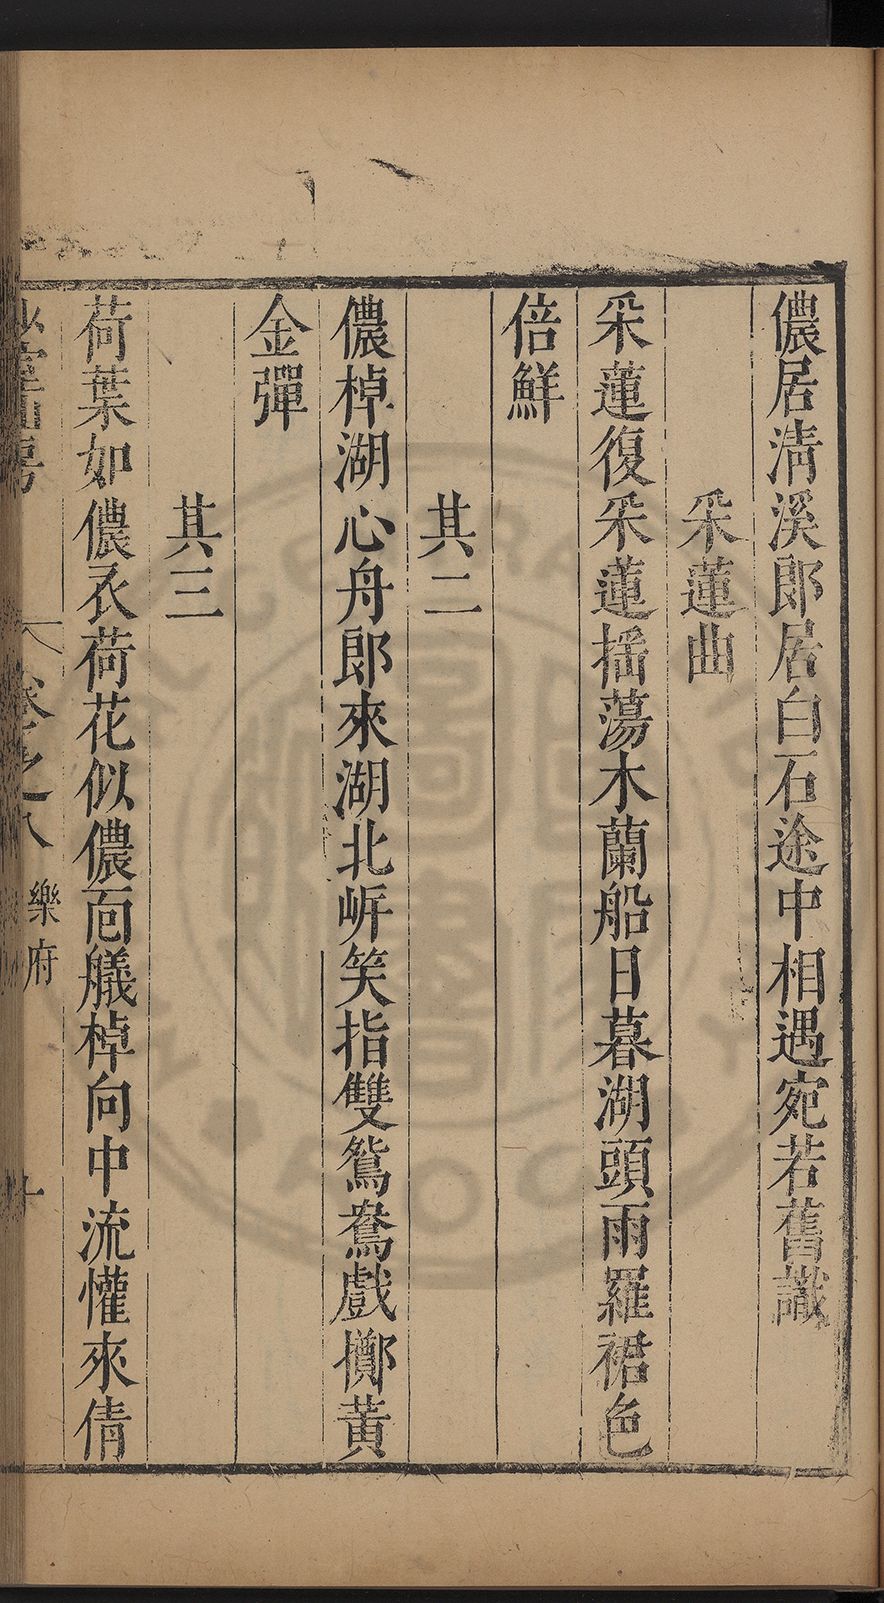 儂居淸溪郎居白石途中相遇宛若舊識
采蓮曲
采蓮復采蓮揺蕩木蘭船日暮湖頭雨羅裙色
倍鮮
其二
儂棹湖心舟郎來湖北岍笑指雙鴛鴦戲擲黃
金彈
其三
荷葉如儂衣荷花似儂面艤棹向中流懽來倩
卷之八
樂府
十